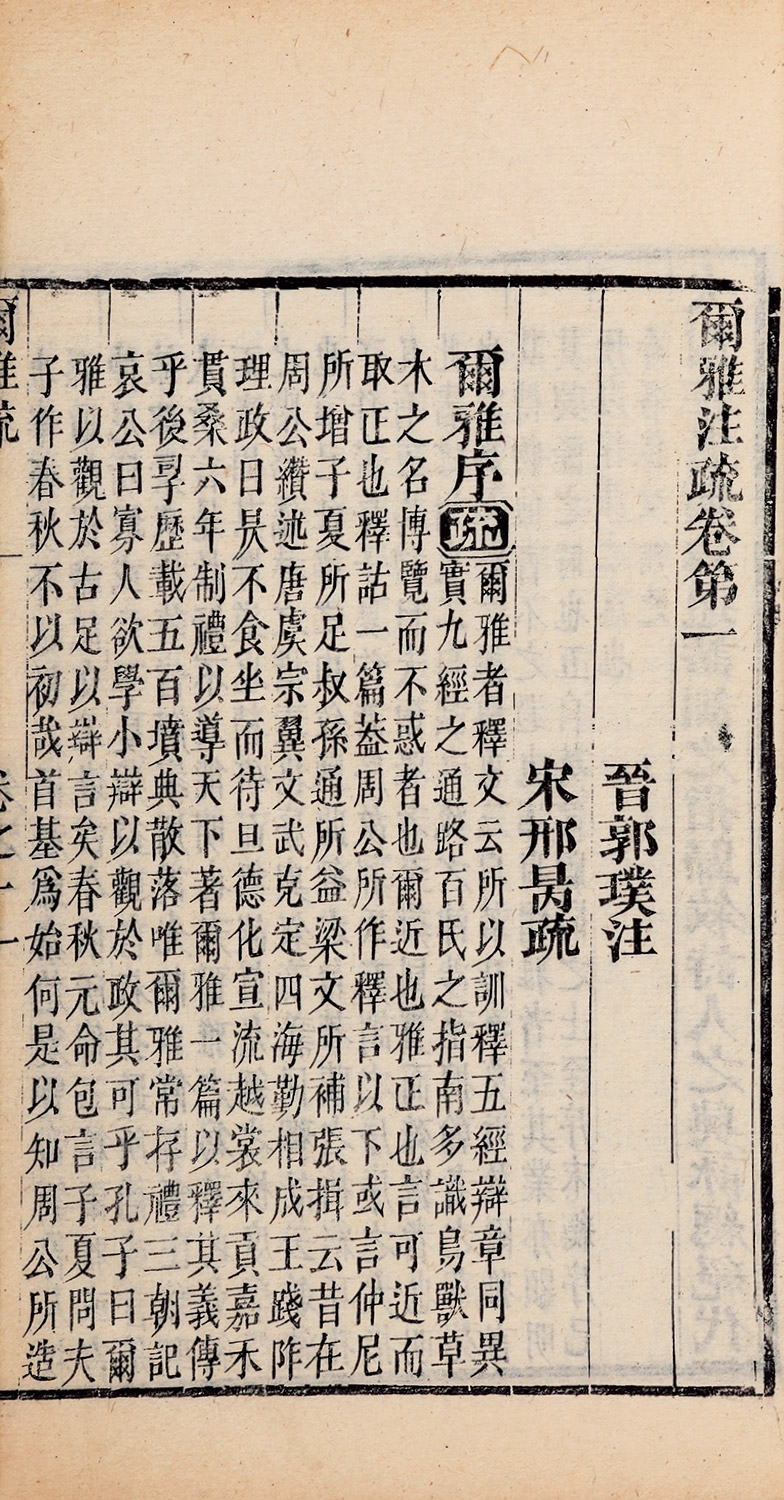 爾雅注疏卷第一
晉郭璞注
宋邢昺疏
爾雅序疏爾雅者釋文云所以訓釋五經辯章同異
實九經之通路百氏之指南多識鳥獸草
木之名博覽而不惑者也爾近也雅正也言可近而
取正也釋詁一篇葢周公所作釋言以下或言仲尼
所增子夏所足叔孫通所益梁文所補張揖云昔在
周公纘述唐虞宗翼文武克定四海勤相成王踐阼
理政日昃不食坐而待旦德化宣流越裳來貢嘉禾
貫桑六年制禮以導天下著爾雅一篇以釋其義傳
乎後㝊歷載五百墳典散落唯爾雅常存禮三朝記
哀公曰寡人欲學小辯以觀於政其可乎孔子曰爾
雅以觀於古足以辯言矣春秋元命包言子夏問夫
子作春秋不以初哉首基爲始何是以知周公所造
爾雅疏 卷之一 一